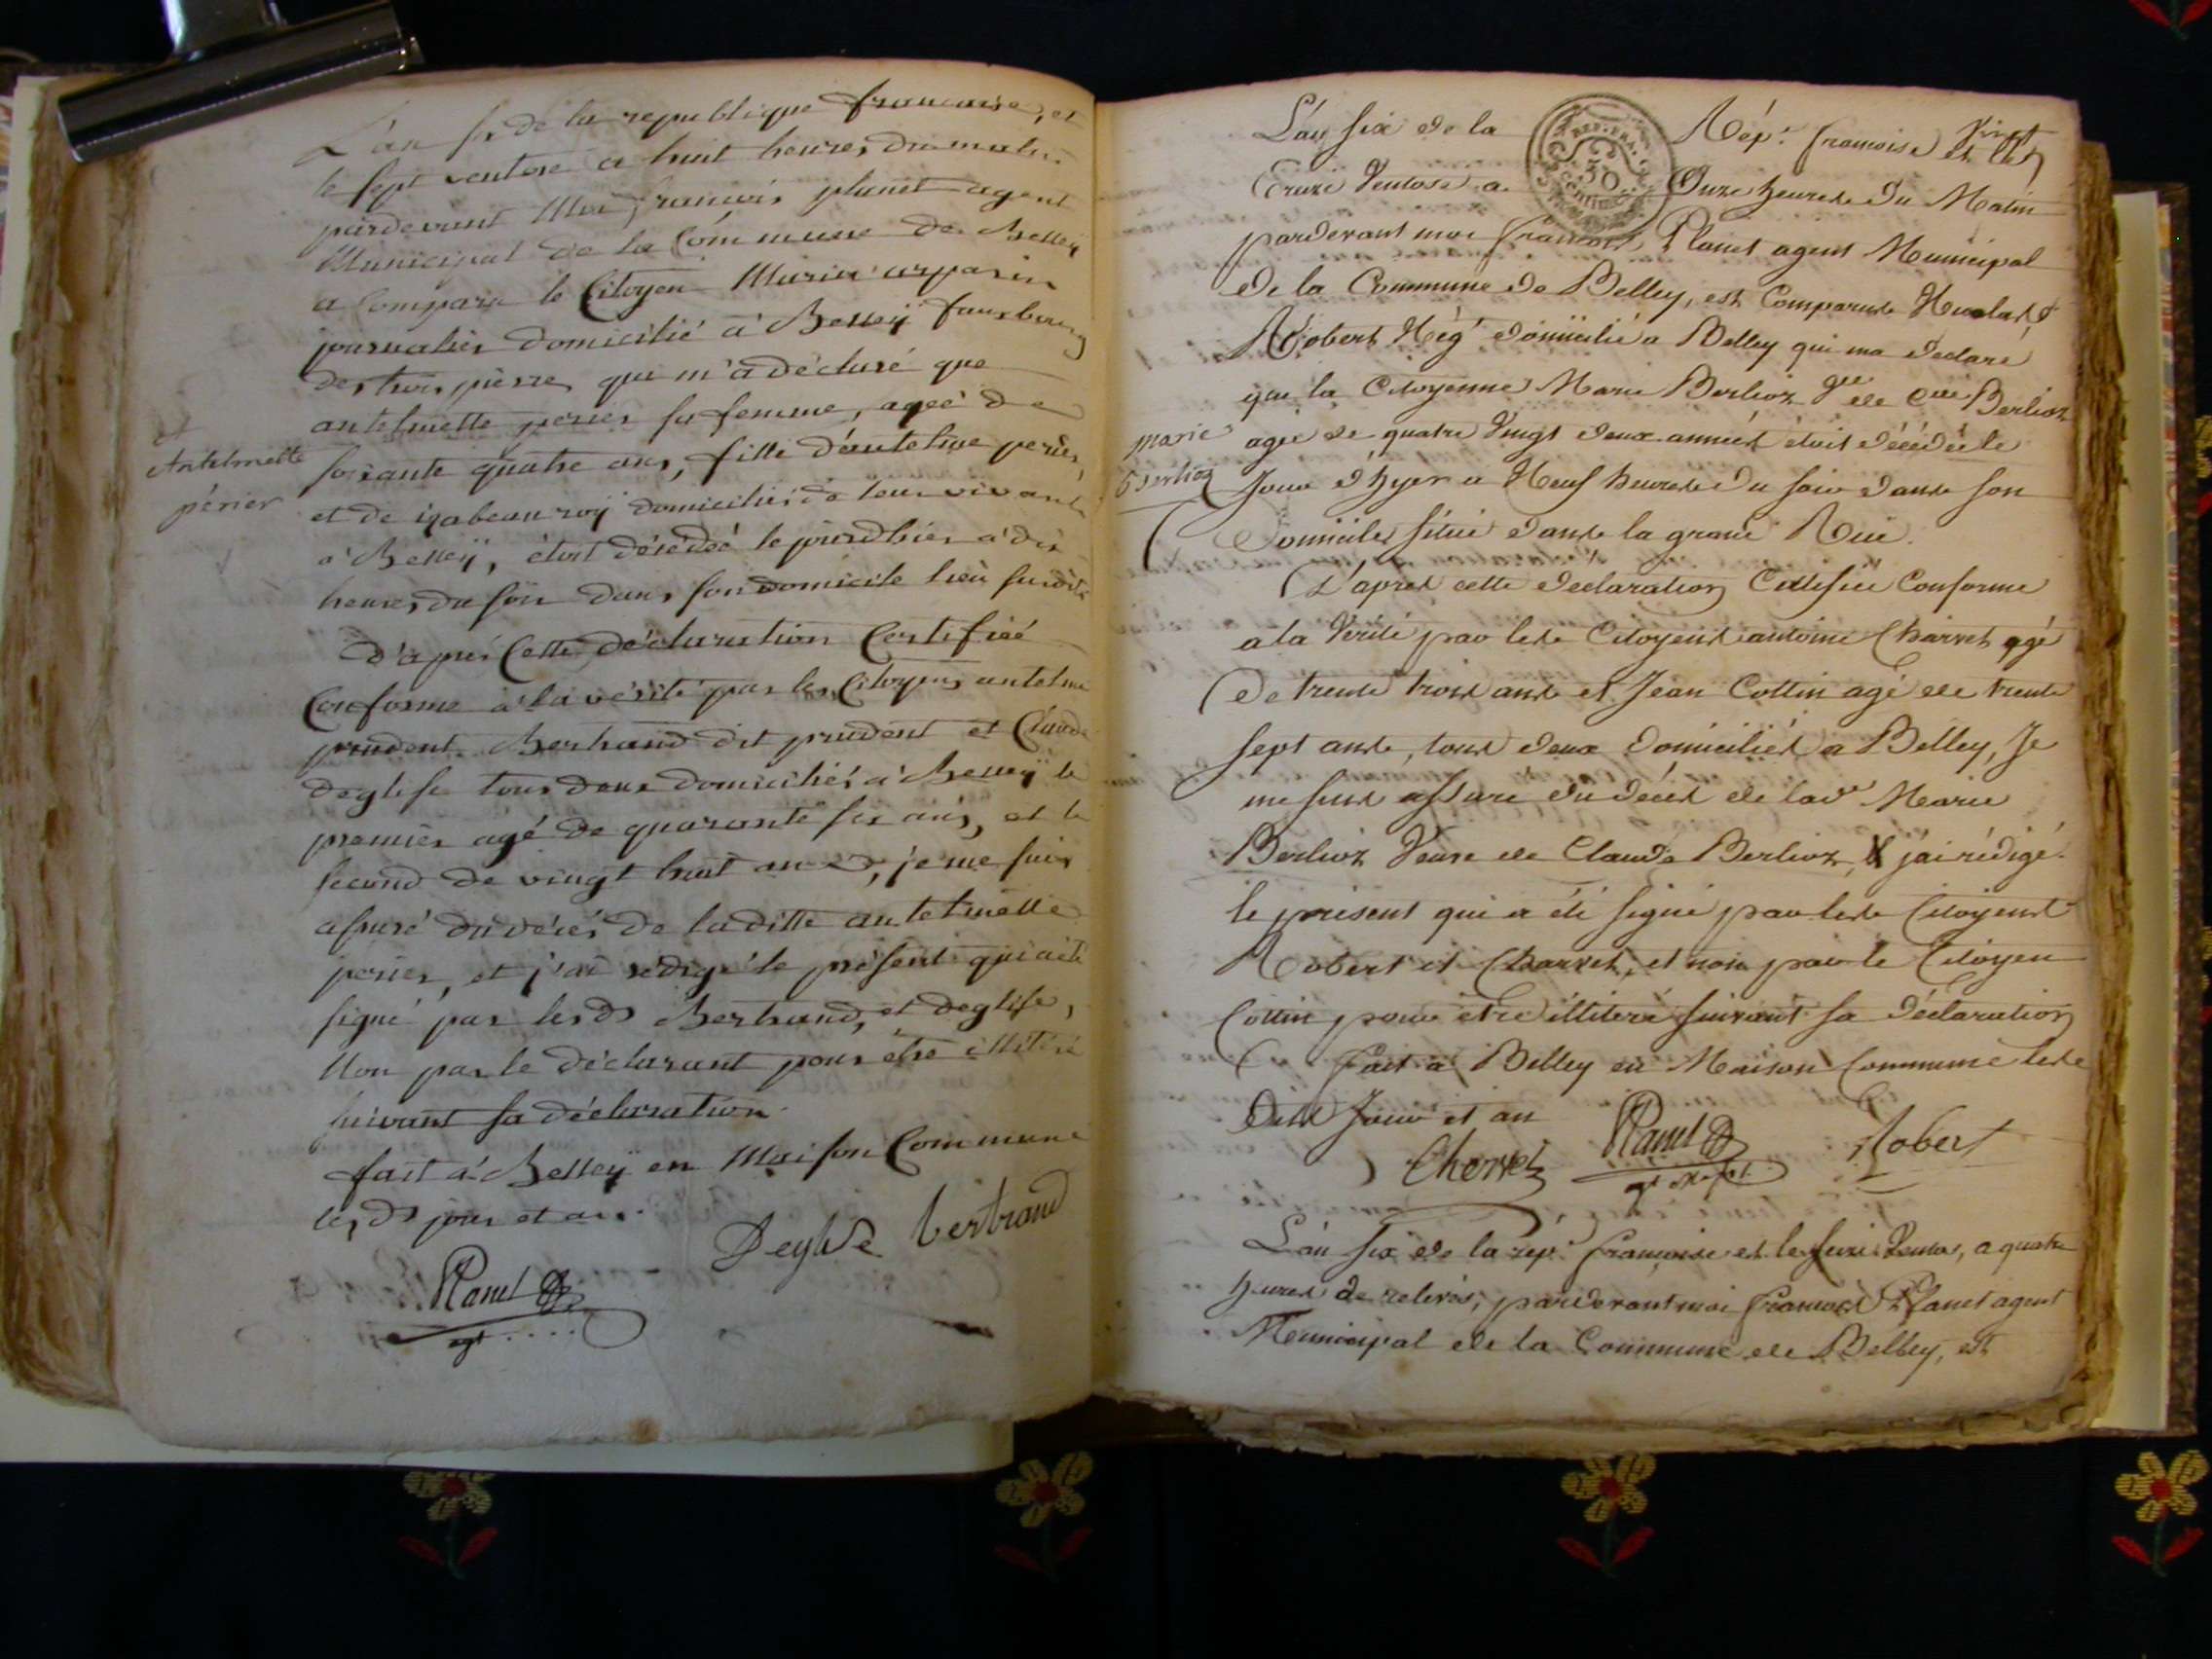 L'an six de la republique francaise, et
le sept ventose a huit heures du matin
pardevant Moi francois planet agent
Municipal de la Commune de Belley
a Comparu le Citoyen
journalier domicilié à Belley fauxbourg
des trois pierres qui m'a déclaré que
antelmette perier sa femme, ageé de
soixante quatre ans, fille d'antelme perier,
et de izabeau roy domiciliés de leur vivant
à Belley, étoit décédeé le jourdhier à dix
heures du soir dans son domicile lieu susdit
Antelmette
périer
D'après Cette déclaration Certifieé
Conforme à la vérité par les Citoyens antelme
prudent Bertrand dit prudent et Claude
deglise tous deux domiciliés à Belley le
premier agé de quarante six ans, et le
second de vingt huit ans, je me suis
assuré du décés de laditte antelmette
perier, et j'ai rédigé le présent qui a été
signé par lesds Bertrand, et deglise,
Non par le déclarant pour être illitéré
suivant sa déclaration
fait à Belley en Maison Commune
lesds jour et an.
Deglise bertrand
Planet
agt
L'an six de la Rép. francoise et le
Ventose a Onze heures du Matin
REP. FRA.
50
centimes
pardevant moi francois Planet agent Municipal
de la Commune de Belley, est Comparus
Robert Nég.t domicilié a Belley qui ma declaré
que la Citoyenne Marie Berlioz de Berlioz
ageé de quatre Vingt deux anneés étoit décédeé le
Jour d'hyer a Neuf heures du soir dans son
Domicile situé dans la grand Rue.
marie
Berlioz
D'apres cette declaration Certifieé Conforme
a la Vérité par les Citoyens antoine Charvet agé
de trente trois ans et Jean Cottin agé de trente
sept ans, tous deux domiciliés a Belley, Je
me suis assuré du décés de lad.e Marie
Berlioz Veuve de Claude Berlioz, & j'ai rédigé
le présent qui a été signé par les Citoyens
Robert et Charvet, et non par le Citoyen
Cottin pour être illiteré suivant sa déclaration
fait à Belley en Maison Commune les
dits Jour et an
Chervet Planet Robert
L'an six de la rép. francoise et le seize Ventose, a quatre
heures de relevés, pardevant moi francois Planet agent
Municipal de la Commune de Belley, est